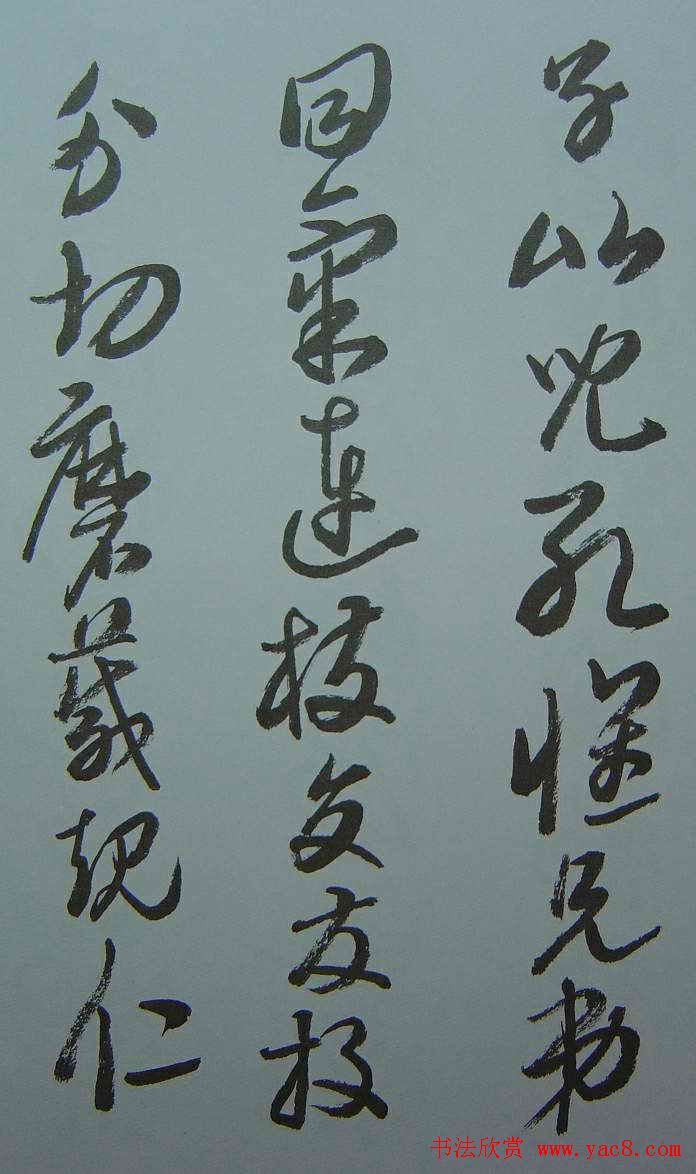 子比兒孔懷兄弟
同氣連枝交友投
分切磨箴規仁
书法欣赏 www.yac8.com